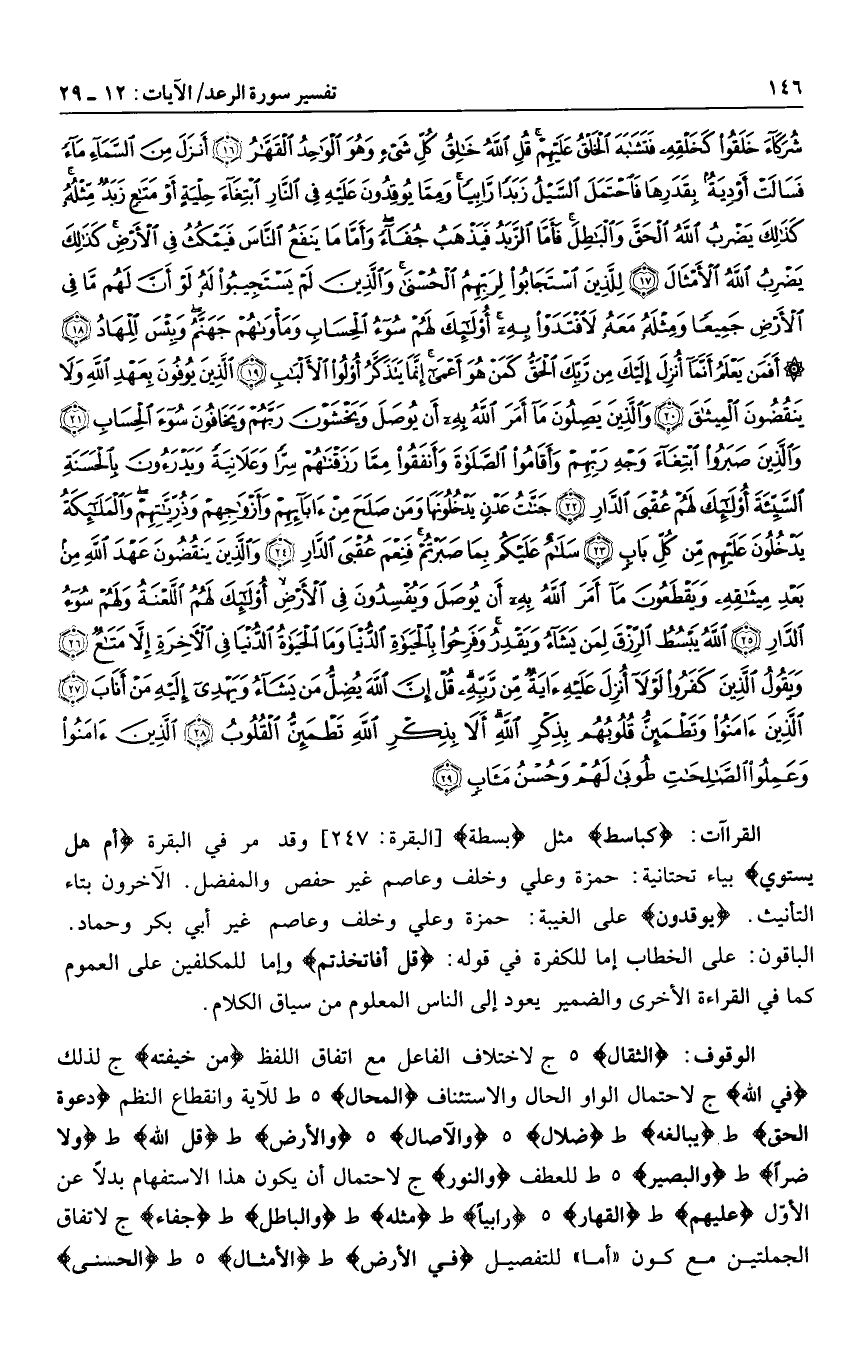 ١٤٦ تفسير سورة الرعد/ الآيات: ١٢ - ٢٩
شُرَكَآءَ خَلَقُوا۟ كَخَلْقِهِۦ فَتَشَٰبَهَ ٱلْخَلْقُ عَلَيْهِمْ ۚ قُلِ ٱللَّهُ خَٰلِقُ كُلِّ شَىْءٍ وَهُوَ ٱلْوَٰحِدُ ٱلْقَهَّٰرُ ﴿١٦﴾ أَنزَلَ مِنَ ٱلسَّمَآءِ مَآءً
فَسَالَتْ أَوْدِيَةٌۢ بِقَدَرِهَا فَٱحْتَمَلَ ٱلسَّيْلُ زَبَدًا رَّابِيًا ۚ وَمِمَّا يُوقِدُونَ عَلَيْهِ فِى ٱلنَّارِ ٱبْتِغَآءَ حِلْيَةٍ أَوْ مَتَٰعٍ زَبَدٌ مِّثْلُهُۥ ۚ
كَذَٰلِكَ يَضْرِبُ ٱللَّهُ ٱلْحَقَّ وَٱلْبَٰطِلَ ۚ فَأَمَّا ٱلزَّبَدُ فَيَذْهَبُ جُفَآءً ۖ وَأَمَّا مَا يَنفَعُ ٱلنَّاسَ فَيَمْكُثُ فِى ٱلْأَرْضِ ۚ كَذَٰلِكَ
يَضْرِبُ ٱللَّهُ ٱلْأَمْثَالَ ﴿١٧﴾ لِلَّذِينَ ٱسْتَجَابُوا۟ لِرَبِّهِمُ ٱلْحُسْنَىٰ ۚ وَٱلَّذِينَ لَمْ يَسْتَجِيبُوا۟ لَهُۥ لَوْ أَنَّ لَهُم مَّا فِى
ٱلْأَرْضِ جَمِيعًا وَمِثْلَهُۥ مَعَهُۥ لَٱفْتَدَوْا۟ بِهِۦٓ ۚ أُو۟لَٰٓئِكَ لَهُمْ سُوٓءُ ٱلْحِسَابِ وَمَأْوَىٰهُمْ جَهَنَّمُ ۖ وَبِئْسَ ٱلْمِهَادُ ﴿١٨﴾
۞ أَفَمَن يَعْلَمُ أَنَّمَآ أُنزِلَ إِلَيْكَ مِن رَّبِّكَ ٱلْحَقُّ كَمَنْ هُوَ أَعْمَىٰٓ ۚ إِنَّمَا يَتَذَكَّرُ أُو۟لُوا۟ ٱلْأَلْبَٰبِ ﴿١٩﴾ ٱلَّذِينَ يُوفُونَ بِعَهْدِ ٱللَّهِ وَلَا
يَنقُضُونَ ٱلْمِيثَٰقَ ﴿٢٠﴾ وَٱلَّذِينَ يَصِلُونَ مَآ أَمَرَ ٱللَّهُ بِهِۦٓ أَن يُوصَلَ وَيَخْشَوْنَ رَبَّهُمْ وَيَخَافُونَ سُوٓءَ ٱلْحِسَابِ ﴿٢١﴾
وَٱلَّذِينَ صَبَرُوا۟ ٱبْتِغَآءَ وَجْهِ رَبِّهِمْ وَأَقَامُوا۟ ٱلصَّلَوٰةَ وَأَنفَقُوا۟ مِمَّا رَزَقْنَٰهُمْ سِرًّا وَعَلَانِيَةً وَيَدْرَءُونَ بِٱلْحَسَنَةِ
ٱلسَّيِّئَةَ أُو۟لَٰٓئِكَ لَهُمْ عُقْبَى ٱلدَّارِ ﴿٢٢﴾ جَنَّٰتُ عَدْنٍ يَدْخُلُونَهَا وَمَن صَلَحَ مِنْ ءَابَآئِهِمْ وَأَزْوَٰجِهِمْ وَذُرِّيَّٰتِهِمْ ۖ وَٱلْمَلَٰٓئِكَةُ
يَدْخُلُونَ عَلَيْهِم مِّن كُلِّ بَابٍ ﴿٢٣﴾ سَلَٰمٌ عَلَيْكُم بِمَا صَبَرْتُمْ ۚ فَنِعْمَ عُقْبَى ٱلدَّارِ ﴿٢٤﴾ وَٱلَّذِينَ يَنقُضُونَ عَهْدَ ٱللَّهِ مِنۢ
بَعْدِ مِيثَٰقِهِۦ وَيَقْطَعُونَ مَآ أَمَرَ ٱللَّهُ بِهِۦٓ أَن يُوصَلَ وَيُفْسِدُونَ فِى ٱلْأَرْضِ ۙ أُو۟لَٰٓئِكَ لَهُمُ ٱللَّعْنَةُ وَلَهُمْ سُوٓءُ
ٱلدَّارِ ﴿٢٥﴾ ٱللَّهُ يَبْسُطُ ٱلرِّزْقَ لِمَن يَشَآءُ وَيَقْدِرُ ۚ وَفَرِحُوا۟ بِٱلْحَيَوٰةِ ٱلدُّنْيَا وَمَا ٱلْحَيَوٰةُ ٱلدُّنْيَا فِى ٱلْآخِرَةِ إِلَّا مَتَٰعٌ ﴿٢٦﴾
وَيَقُولُ ٱلَّذِينَ كَفَرُوا۟ لَوْلَآ أُنزِلَ عَلَيْهِ ءَايَةٌ مِّن رَّبِّهِۦ ۗ قُلْ إِنَّ ٱللَّهَ يُضِلُّ مَن يَشَآءُ وَيَهْدِىٓ إِلَيْهِ مَنْ أَنَابَ ﴿٢٧﴾
ٱلَّذِينَ ءَامَنُوا۟ وَتَطْمَئِنُّ قُلُوبُهُم بِذِكْرِ ٱللَّهِ ۗ أَلَا بِذِكْرِ ٱللَّهِ تَطْمَئِنُّ ٱلْقُلُوبُ ﴿٢٨﴾ ٱلَّذِينَ ءَامَنُوا۟
وَعَمِلُوا۟ ٱلصَّٰلِحَٰتِ طُوبَىٰ لَهُمْ وَحُسْنُ مَـَٔابٍ ﴿٢٩﴾
القراآت: ﴿كباسط﴾ مثل ﴿بسطة﴾ [البقرة: ٢٤٧] وقد مر في البقرة ﴿أم هل
يستوي﴾ بياء تحتانية: حمزة وعلي وخلف وعاصم غير حفص والمفضل. الآخرون بتاء
التأنيث. ﴿يوقدون﴾ على الغيبة: حمزة وعلي وخلف وعاصم غير أبي بكر وحماد.
الباقون: على الخطاب إما للكفرة في قوله: ﴿قل أفاتخذتم﴾ وإما للمكلفين على العموم
كما في القراءة الأخرى والضمير يعود إلى الناس المعلوم من سياق الكلام.
الوقوف: ﴿الثقال﴾ ٥ ج لاختلاف الفاعل مع اتفاق اللفظ ﴿من خيفته﴾ ج لذلك
﴿في الله﴾ ج لاحتمال الواو الحال والاستئناف ﴿المحال﴾ ٥ ط للآية وانقطاع النظم ﴿دعوة
الحق﴾ ط ﴿يبالغه﴾ ط ﴿ضلال﴾ ٥ ﴿والآصال﴾ ٥ ﴿والأرض﴾ ط ﴿قل الله﴾ ط ﴿ولا
ضراً﴾ ط ﴿والبصير﴾ ٥ ط للعطف ﴿والنور﴾ ج لاحتمال أن يكون هذا الاستفهام بدلاً عن
الأوّل ﴿عليهم﴾ ط ﴿القهار﴾ ٥ ﴿رابياً﴾ ط ﴿مثله﴾ ط ﴿والباطل﴾ ط ﴿جفاء﴾ ج لاتفاق
الجملتين مع كون «أما» للتفصيل ﴿في الأرض﴾ ط ﴿الأمثال﴾ ٥ ط ﴿الحسنى﴾